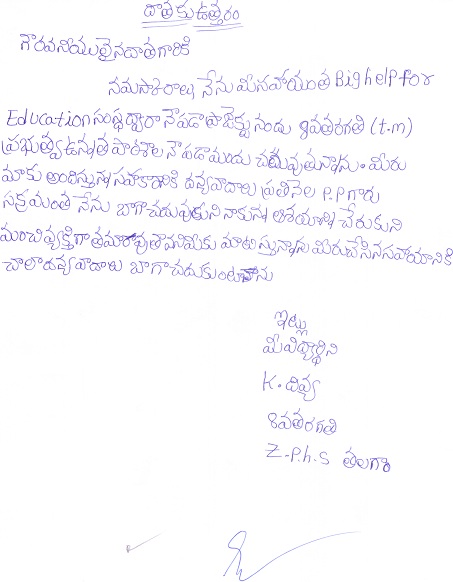 దాతకు ఉత్తరం
గౌరవనీయులైన దాతగారికి
నమస్కారాలు, నేను మీ సహాయంత Big help for
Education సంస్థ ద్వారా నౌపడా ప్రాజెక్టు నందు 8వతరగతి (t.m)
ప్రభుత్వ ఉన్నత పాఠశాల నౌపడాయందు చదువుతున్నాను. మీరు
మాకు అందిస్తున్న సహకారానికి దన్యవాదాలు ప్రతినెల P.P గారు
సక్రమంత నేను బాగా చదువుకుని నాకున్న ఆశయాన్ని చేరుకుని
మంచి వ్యక్తిగా తయారావుతానని మీకు మాటిస్తున్నాను మీరుచేసిన సహాయానికి
చాలా దన్యవాదాలు బాగాచదుకుంటాను
ఇట్లు
మీ విద్యార్థిని
K. దివ్య
8వతరగతి
Z.P.h.S తలగాం